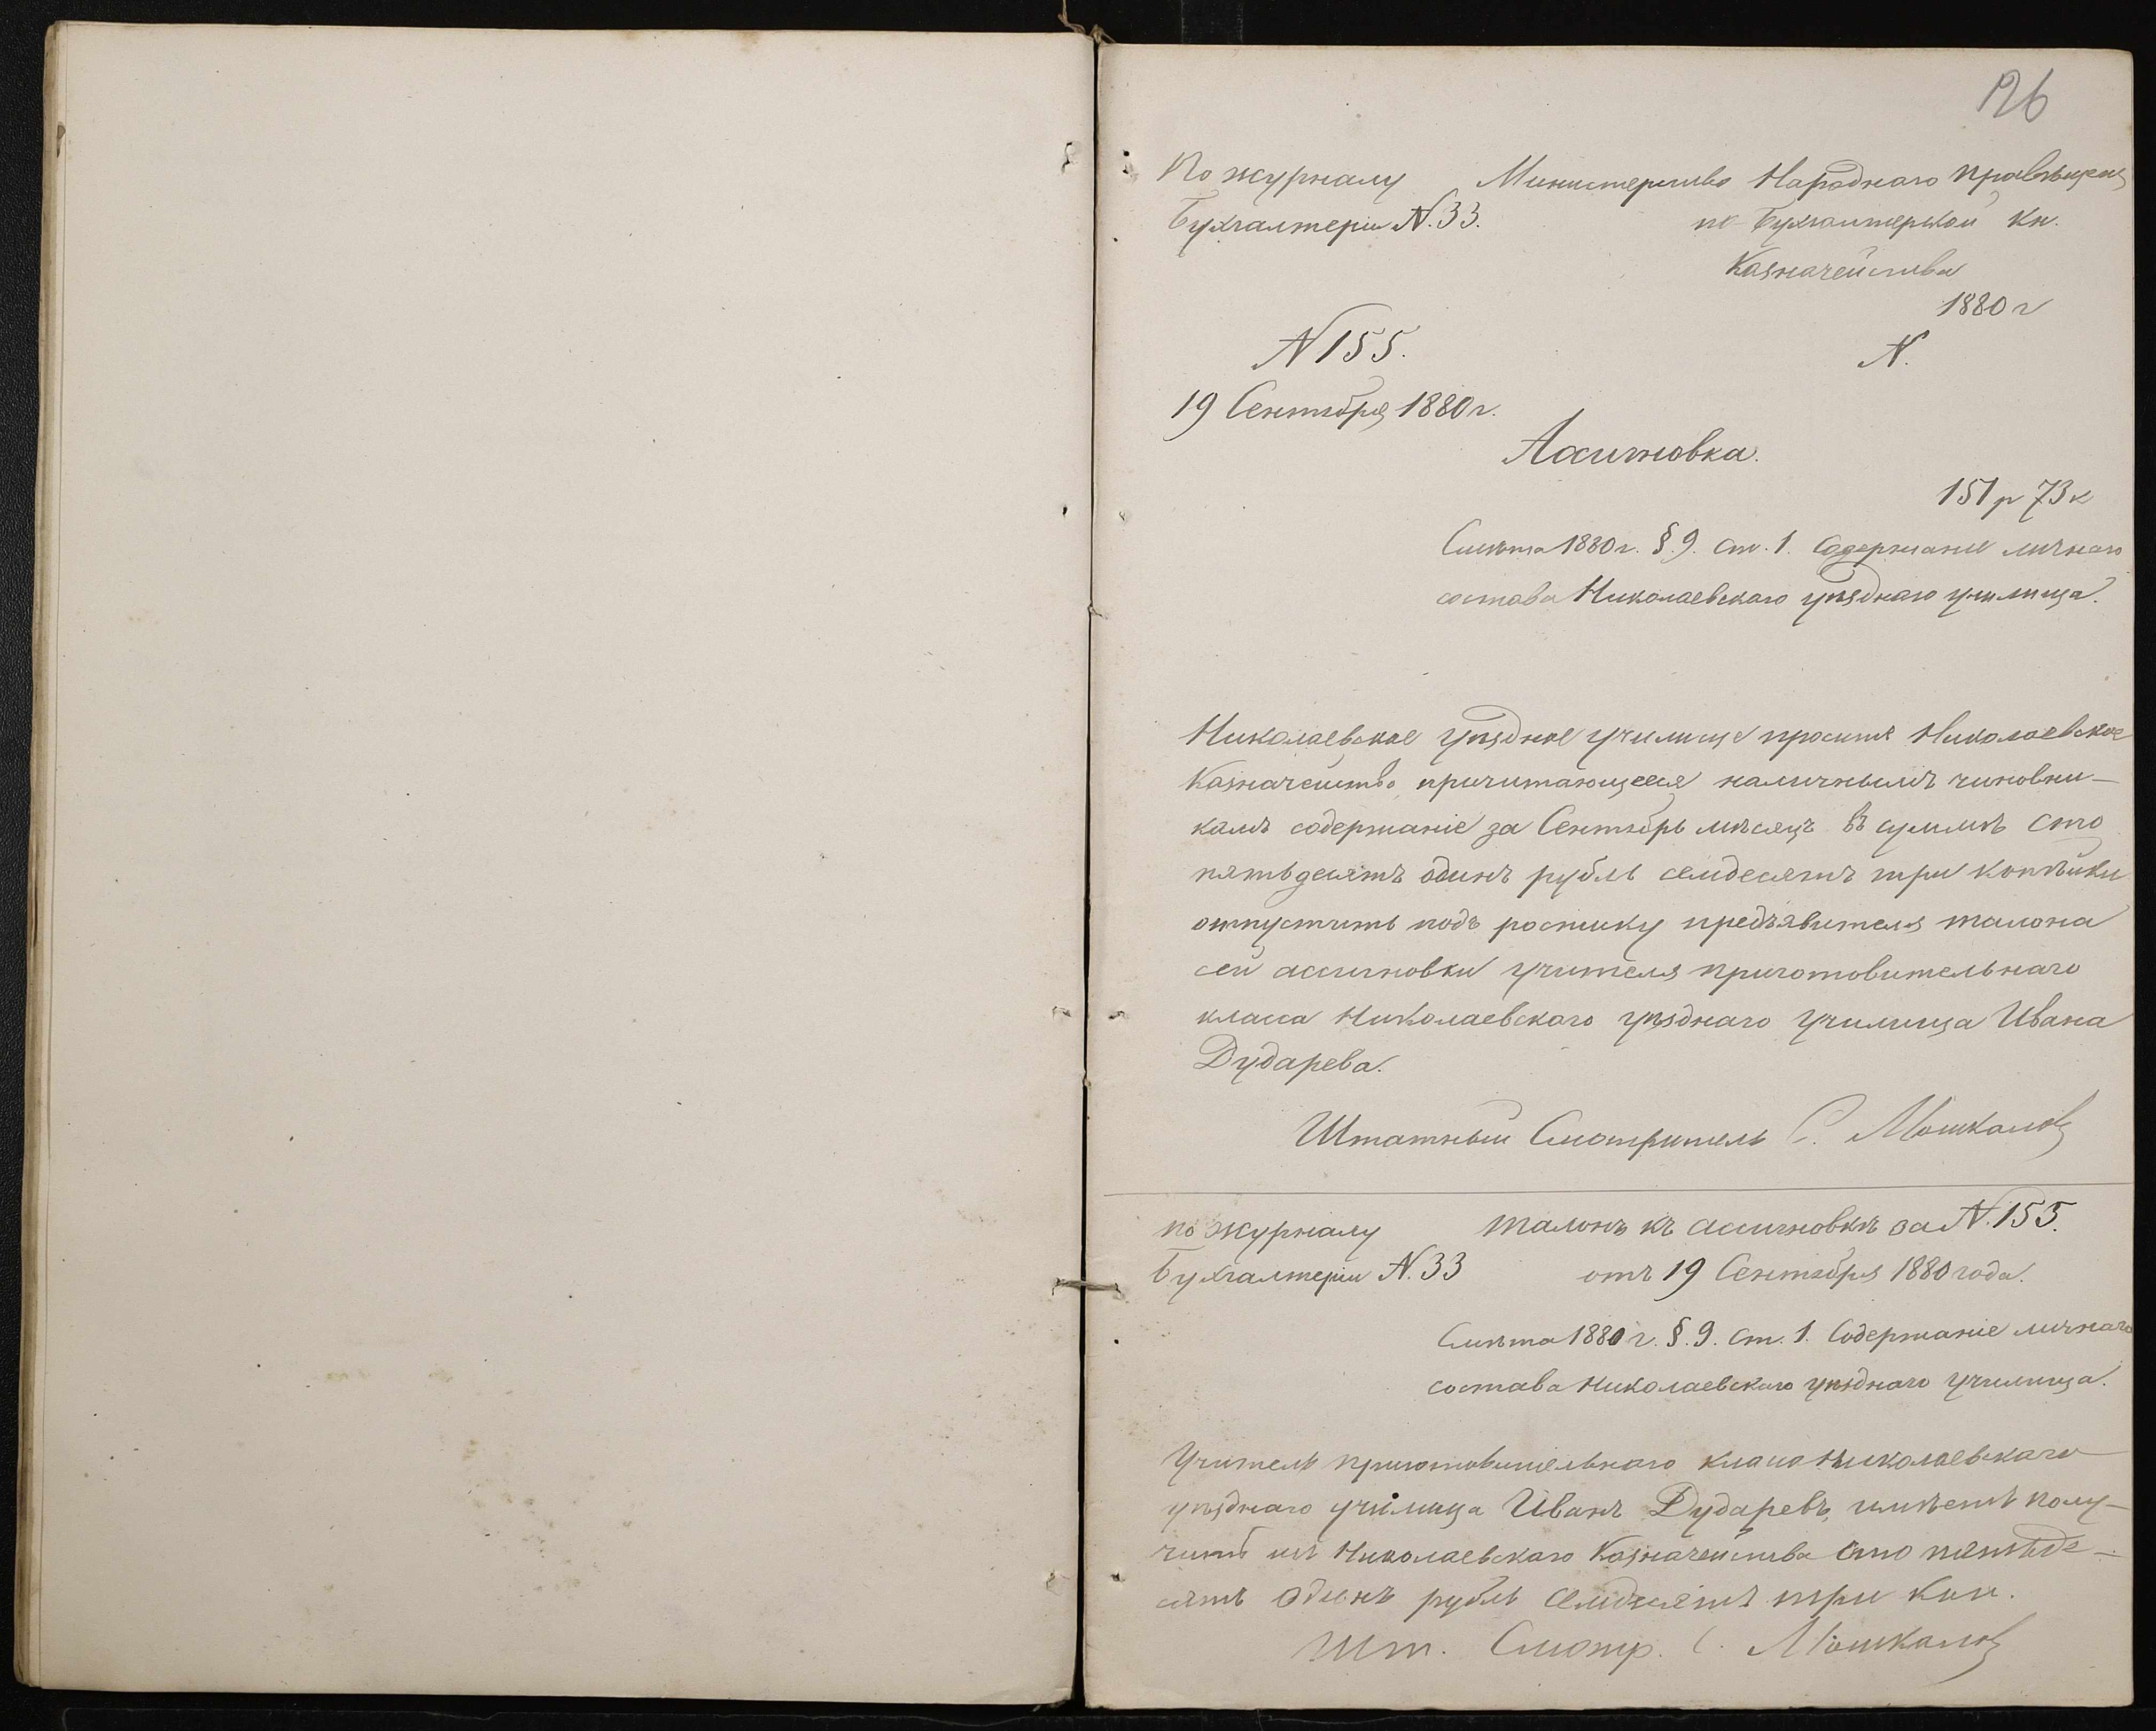 126
По журналу
Бухгалтеріи N. 33.
Министерство Народнаго просвѣщенія
по Бухгалтерской Кн.
Казначейства
1880 г
N 155.
N.
19 Сентября 1880 г.
Ассигновка.
151 р 73 к
Смѣта 1880 г. §. 9. Ст. 1. Содержаніе личнаго
состава Николаевскаго уѣзднаго училища.
Николаевское уѣздное училище проситъ Николаевское
Казначейство, причитающееся наличнымъ чиновни-
камъ содержаніе за Сентябрь мѣсяцъ въ суммѣ сто
пятьдесятъ одинъ рубль семдесятъ три копѣйки
отпустить подъ росписку предъявителя талона
сей ассигновки учителя приготовительнаго
класса Николаевскаго уѣзднаго училища Ивана
Дударева.
Штатный Смотритель С. Мошкаловъ
по журналу
Бухгалтеріи N. 33
Талонъ къ ассигновкѣ за N. 155.
отъ 19 Сентября 1880 года.
Смѣта 1880 г. §. 9. Ст. 1. Содержаніе личнаго
состава Николаевскаго уѣзднаго училища.
Учитель приготовительнаго класа Николаевскаго
уѣзднаго училища Иванъ Дударевъ, имѣетъ полу-
чить изъ Николаевскаго Казначейства сто пятьде-
сятъ одинъ рубль семдесятъ три коп.
Шт. Смотр. С. Мошкаловъ